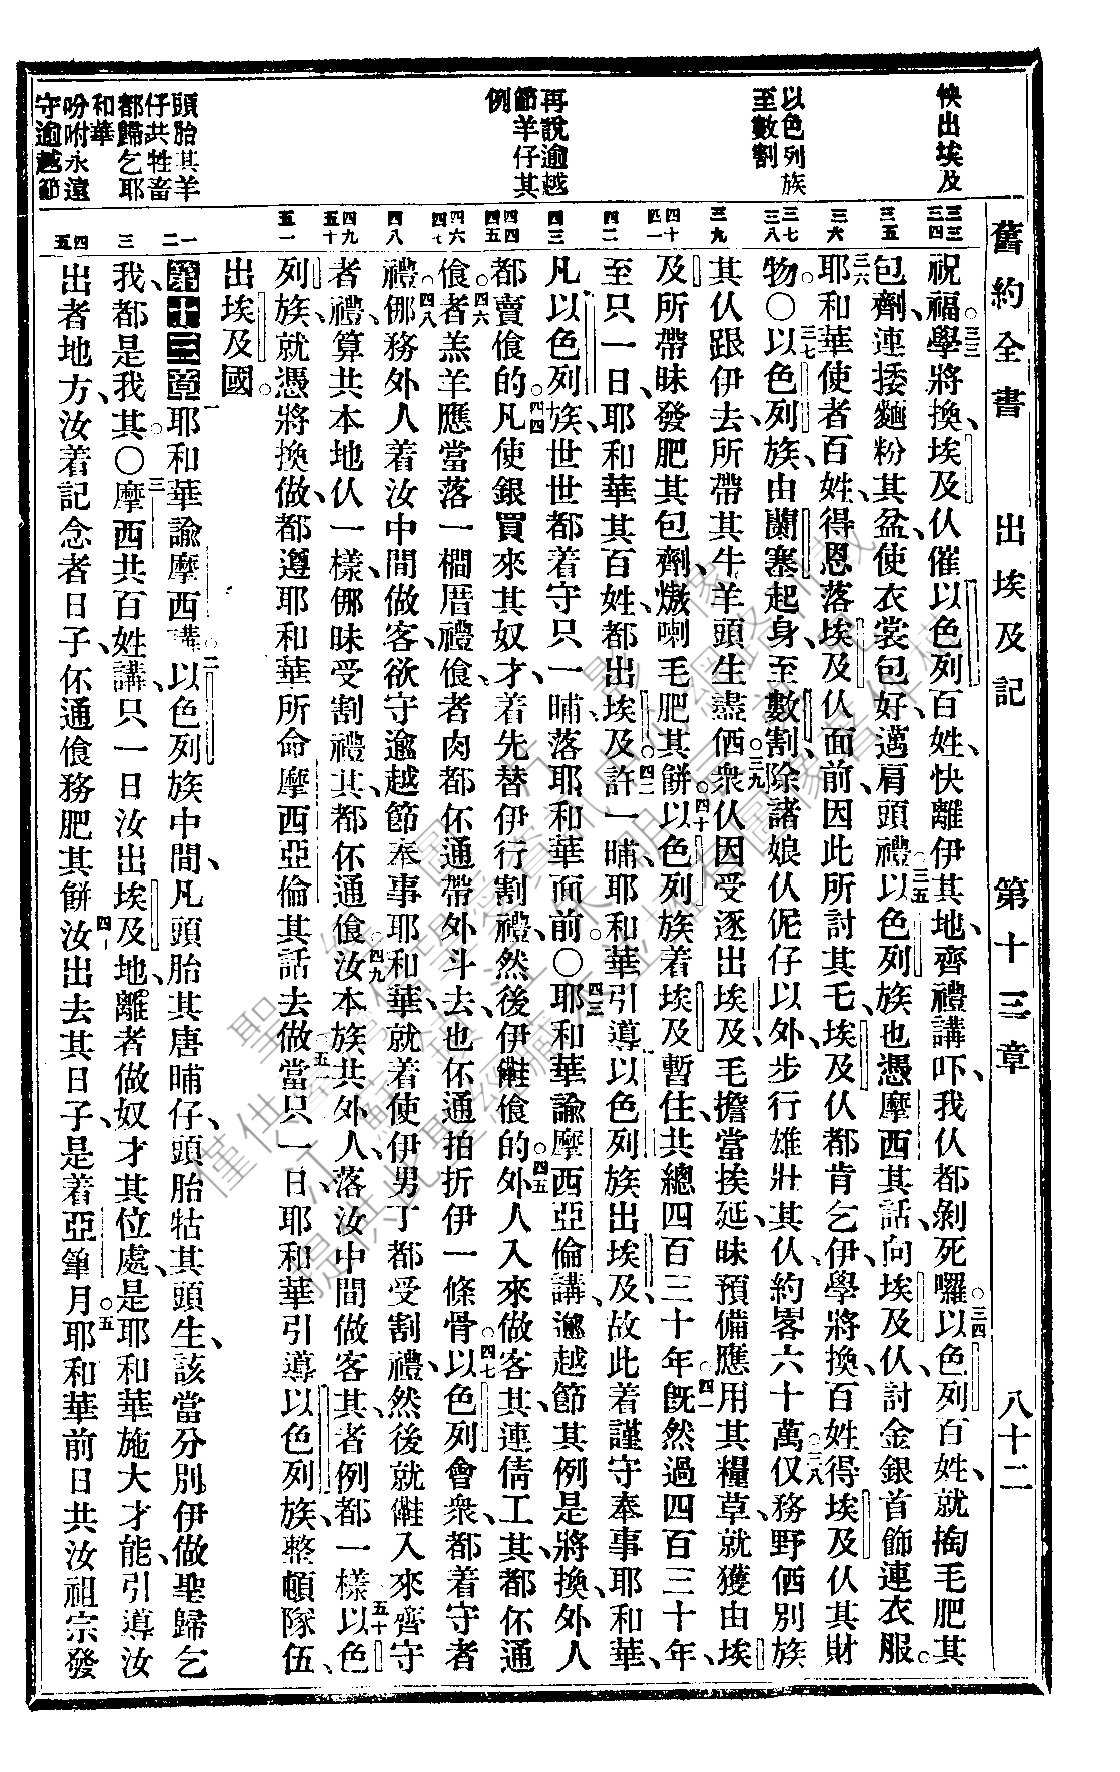 舊約全書　出埃及記　第十三章　八十二
快出埃及
以色列族
至數割
再說逾越
節羊仔其
例
頭胎其羊
仔共牲畜
都歸乞耶
和華
吩咐永遠
守逾越節
祝福。三三學將換、埃及仈催以色列百姓、快離伊其地、齊禮講、吓、我仈都剝死囉。三四以色列百姓、就掏毛肥其
包劑、連捼麵粉其盆、使衣裳包好、邁肩頭禮。三五以色列族也憑摩西其話、向埃及仈、討金銀首飾連衣服。
三六耶和華使者百姓、得恩落埃及仈面前、因此所討其毛、埃及仈都肯乞伊、學將換、百姓得埃及仈其財
物。〇三七以色列族、由蘭塞起身、至數割、除諸娘仈伲仔以外、步行雄壯其仈、約畧六十萬。三八仅務野伵別族
其仈跟伊去、所帶其牛羊頭生盡伵。三九衆仈因受逐出埃及、毛擔當挨延、昧預備應用其糧草、就獲由埃
及所帶昧發肥其包劑、燉喇毛肥其餅。四十以色列族着埃及暫住、共總四百三十年。四一旣然過四百三十年、
至只一日、耶和華其百姓、都出埃及。四二許一晡、耶和華引導以色列族出埃及、故此着謹守奉事耶和華、
凡以色列族、世世都着守只一晡落耶和華面前。〇四三耶和華諭摩西亞倫講、逾越節其例、是將換、外人
都賣飡的。四四凡使銀買來其奴才、着先替伊行割禮、然後伊㒰飡的。四五外人入來做客其、連倩工其、都伓通
飡。四六飡者羔羊、應當落一櫩厝禮飡、者肉都伓通帶外斗去、也伓通拍折伊一條骨。四七以色列會衆、都着守者
禮。四八㑚務外人着汝中間做客、欲守逾越節奉事耶和華、就着使伊男丁都受割禮、然後就㒰入來齊守
者禮、算共本地仈一樣、㑚昧受割禮其、都伓通飡。四九汝本族共外人、落汝中間做客其、者例都一樣。五十以色
列族、就憑將換做、都遵耶和華所命摩西亞倫其話去做。五一當只一日、耶和華引導以色列族、整頓隊伍、
出埃及國。
第十三章　一耶和華諭摩西講、二以色列族中間、凡頭胎其唐晡仔、頭胎牯其頭生、該當分別伊做聖歸乞
我、都是我其。〇三摩西共百姓講、只一日汝出埃及地、離者做奴才其位處、是耶和華施大才能、引導汝
出者地方、汝着記念者日子、伓通飡務肥其餅。四汝出去其日子、是着亞筆月。五耶和華前日共汝祖宗發